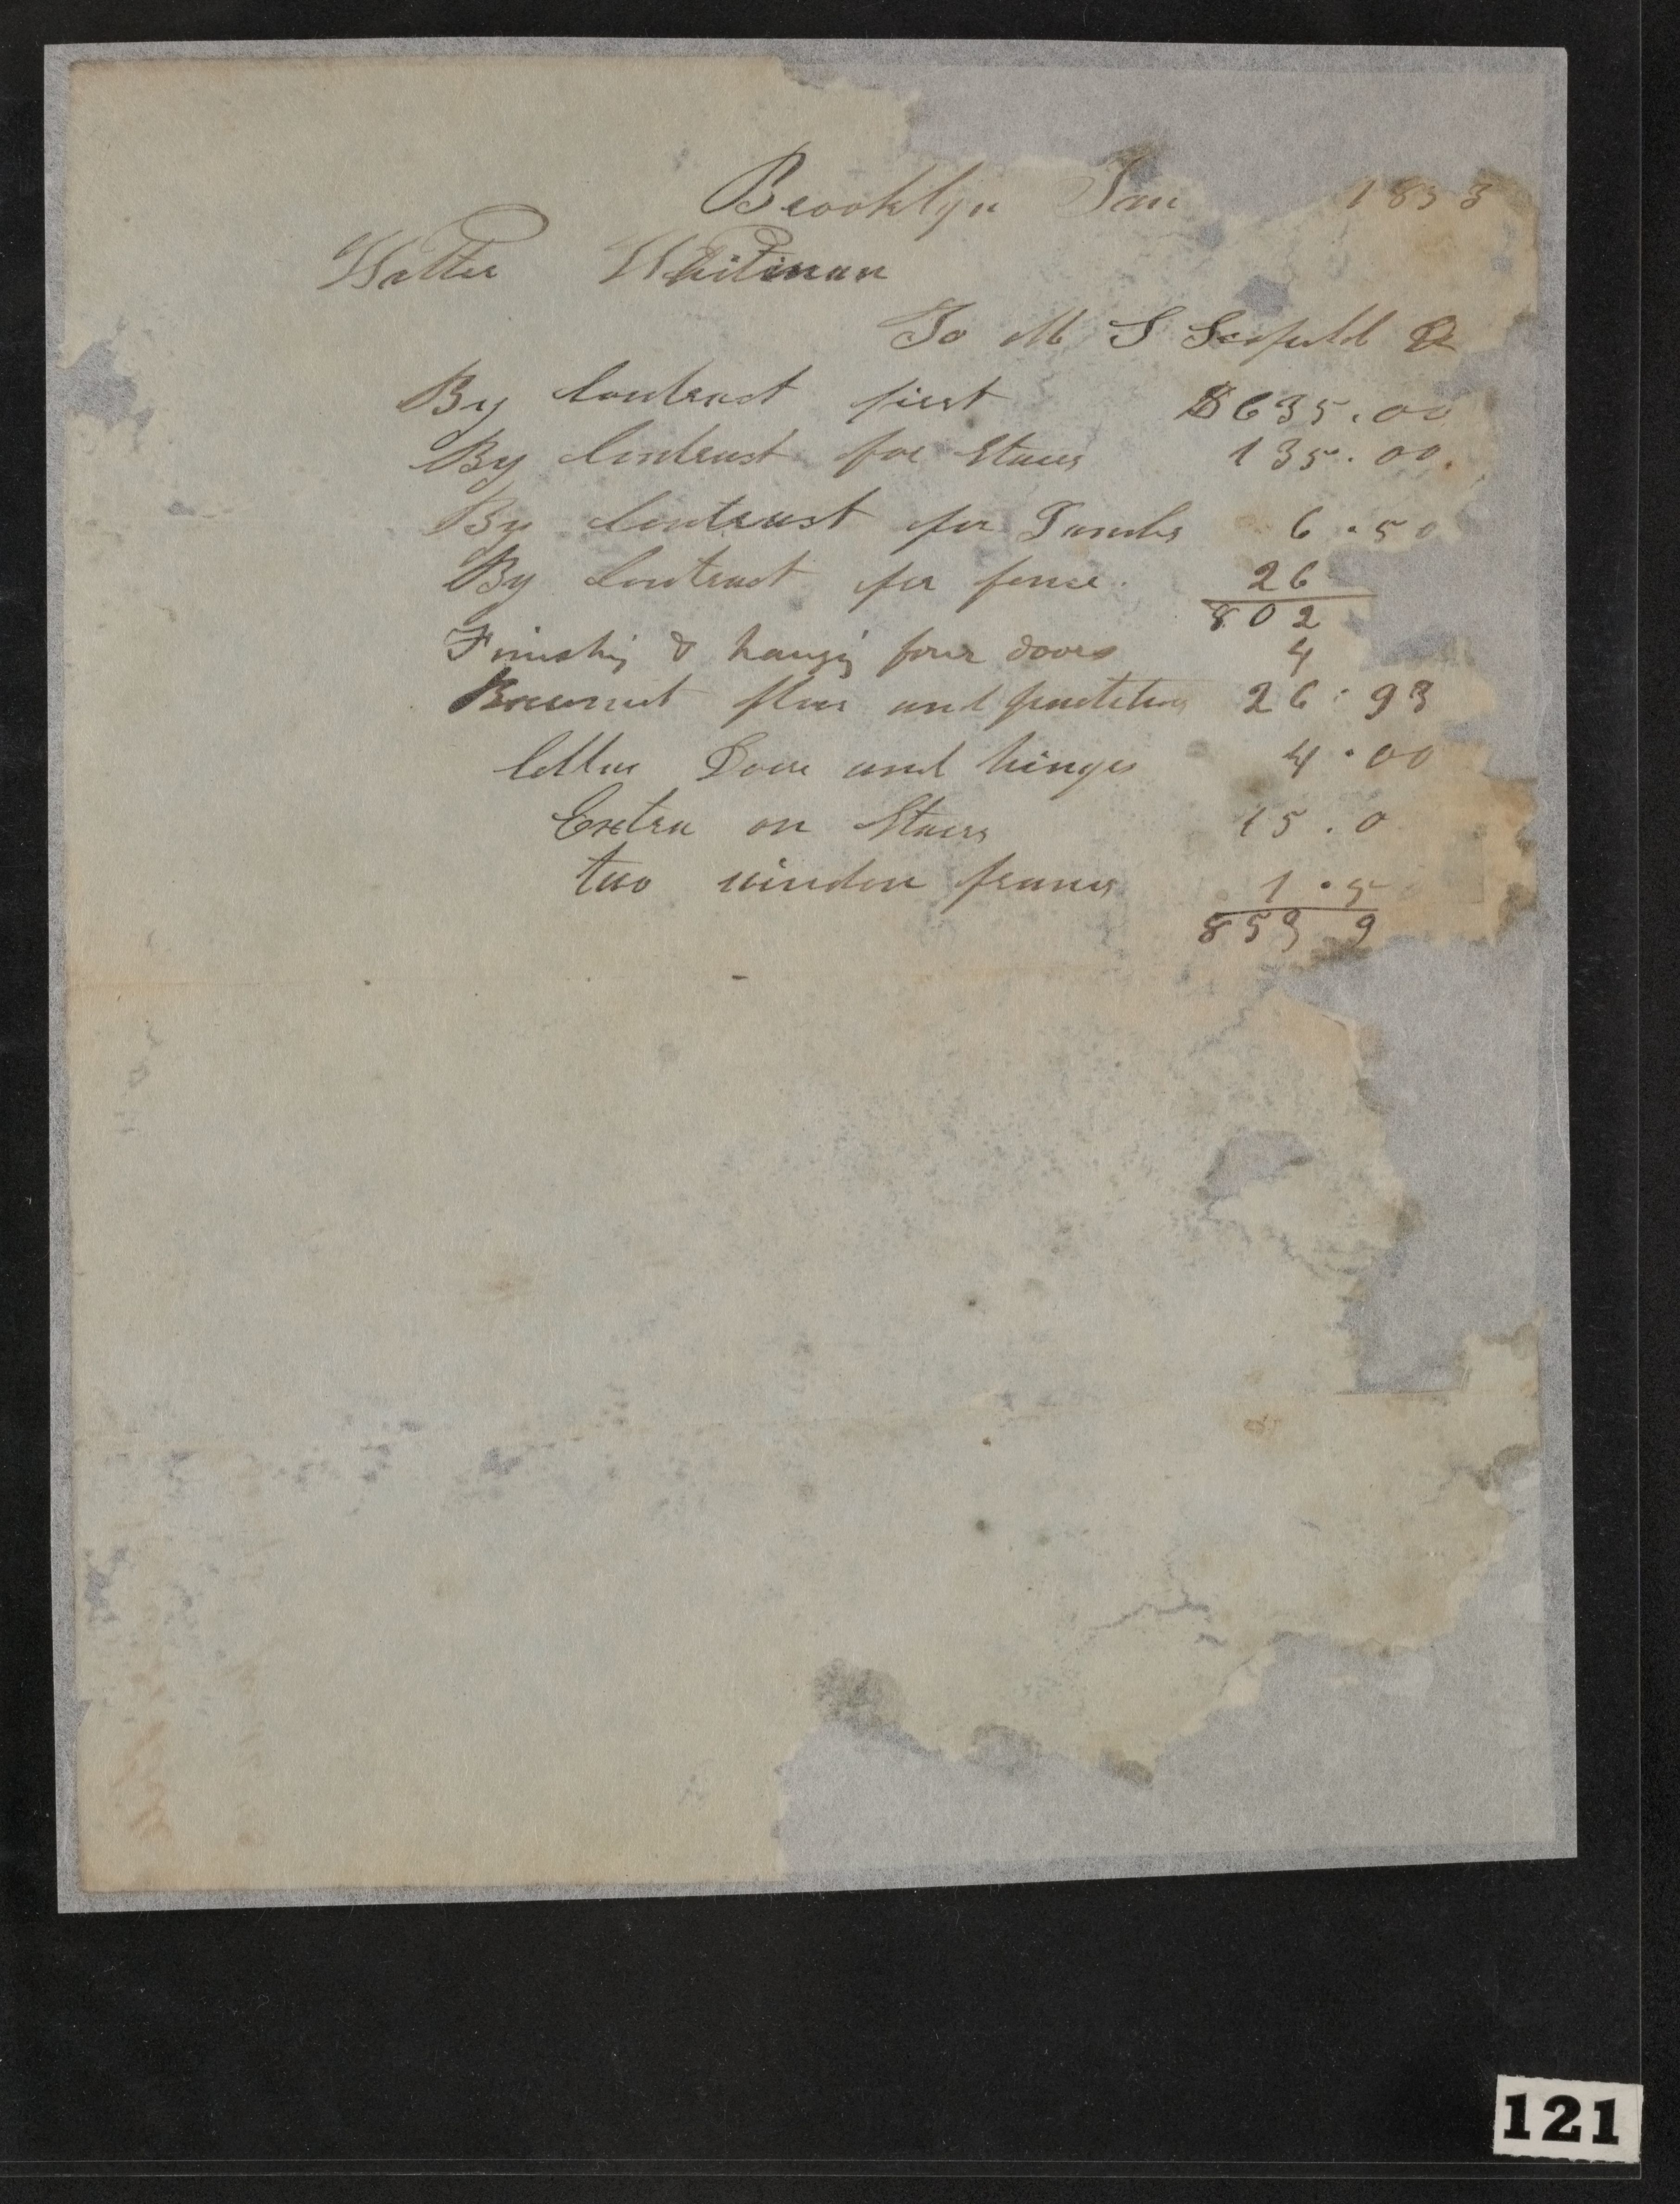 Brooklyn Jan 1853
Walter Whitman
To M S Scofield Dr
By Contract first $635.00
By Contract for Stairs 135.00.
By Contract for 6.50
By Contract for fence. 26
802
Finishig & hangig four doors 4
Basement floor and partition 26.93
Cellar Door and hinges 4.00
Extra on Stairs 15.0
two window frames 1.5
859 9
121